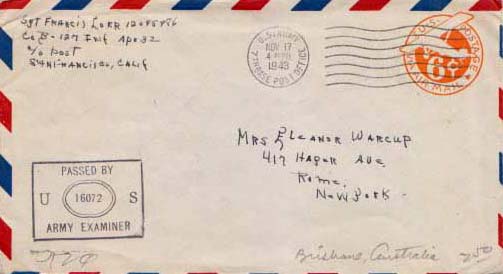 Sgt Francis Lorr 12085986
Co B - 127 Inf APO 32
c/o Post
San Francisco, Calif
U.S. ARMY
NOV 17
1943
POSTAL SERVICE
U.S. POSTAGE
6¢
VIA AIR MAIL
Mrs Eleanor Warcup
417 Hager Ave.
Rome,
New York
PASSED BY
U 16072 S
ARMY EXAMINER
Brisbane, Australia
250